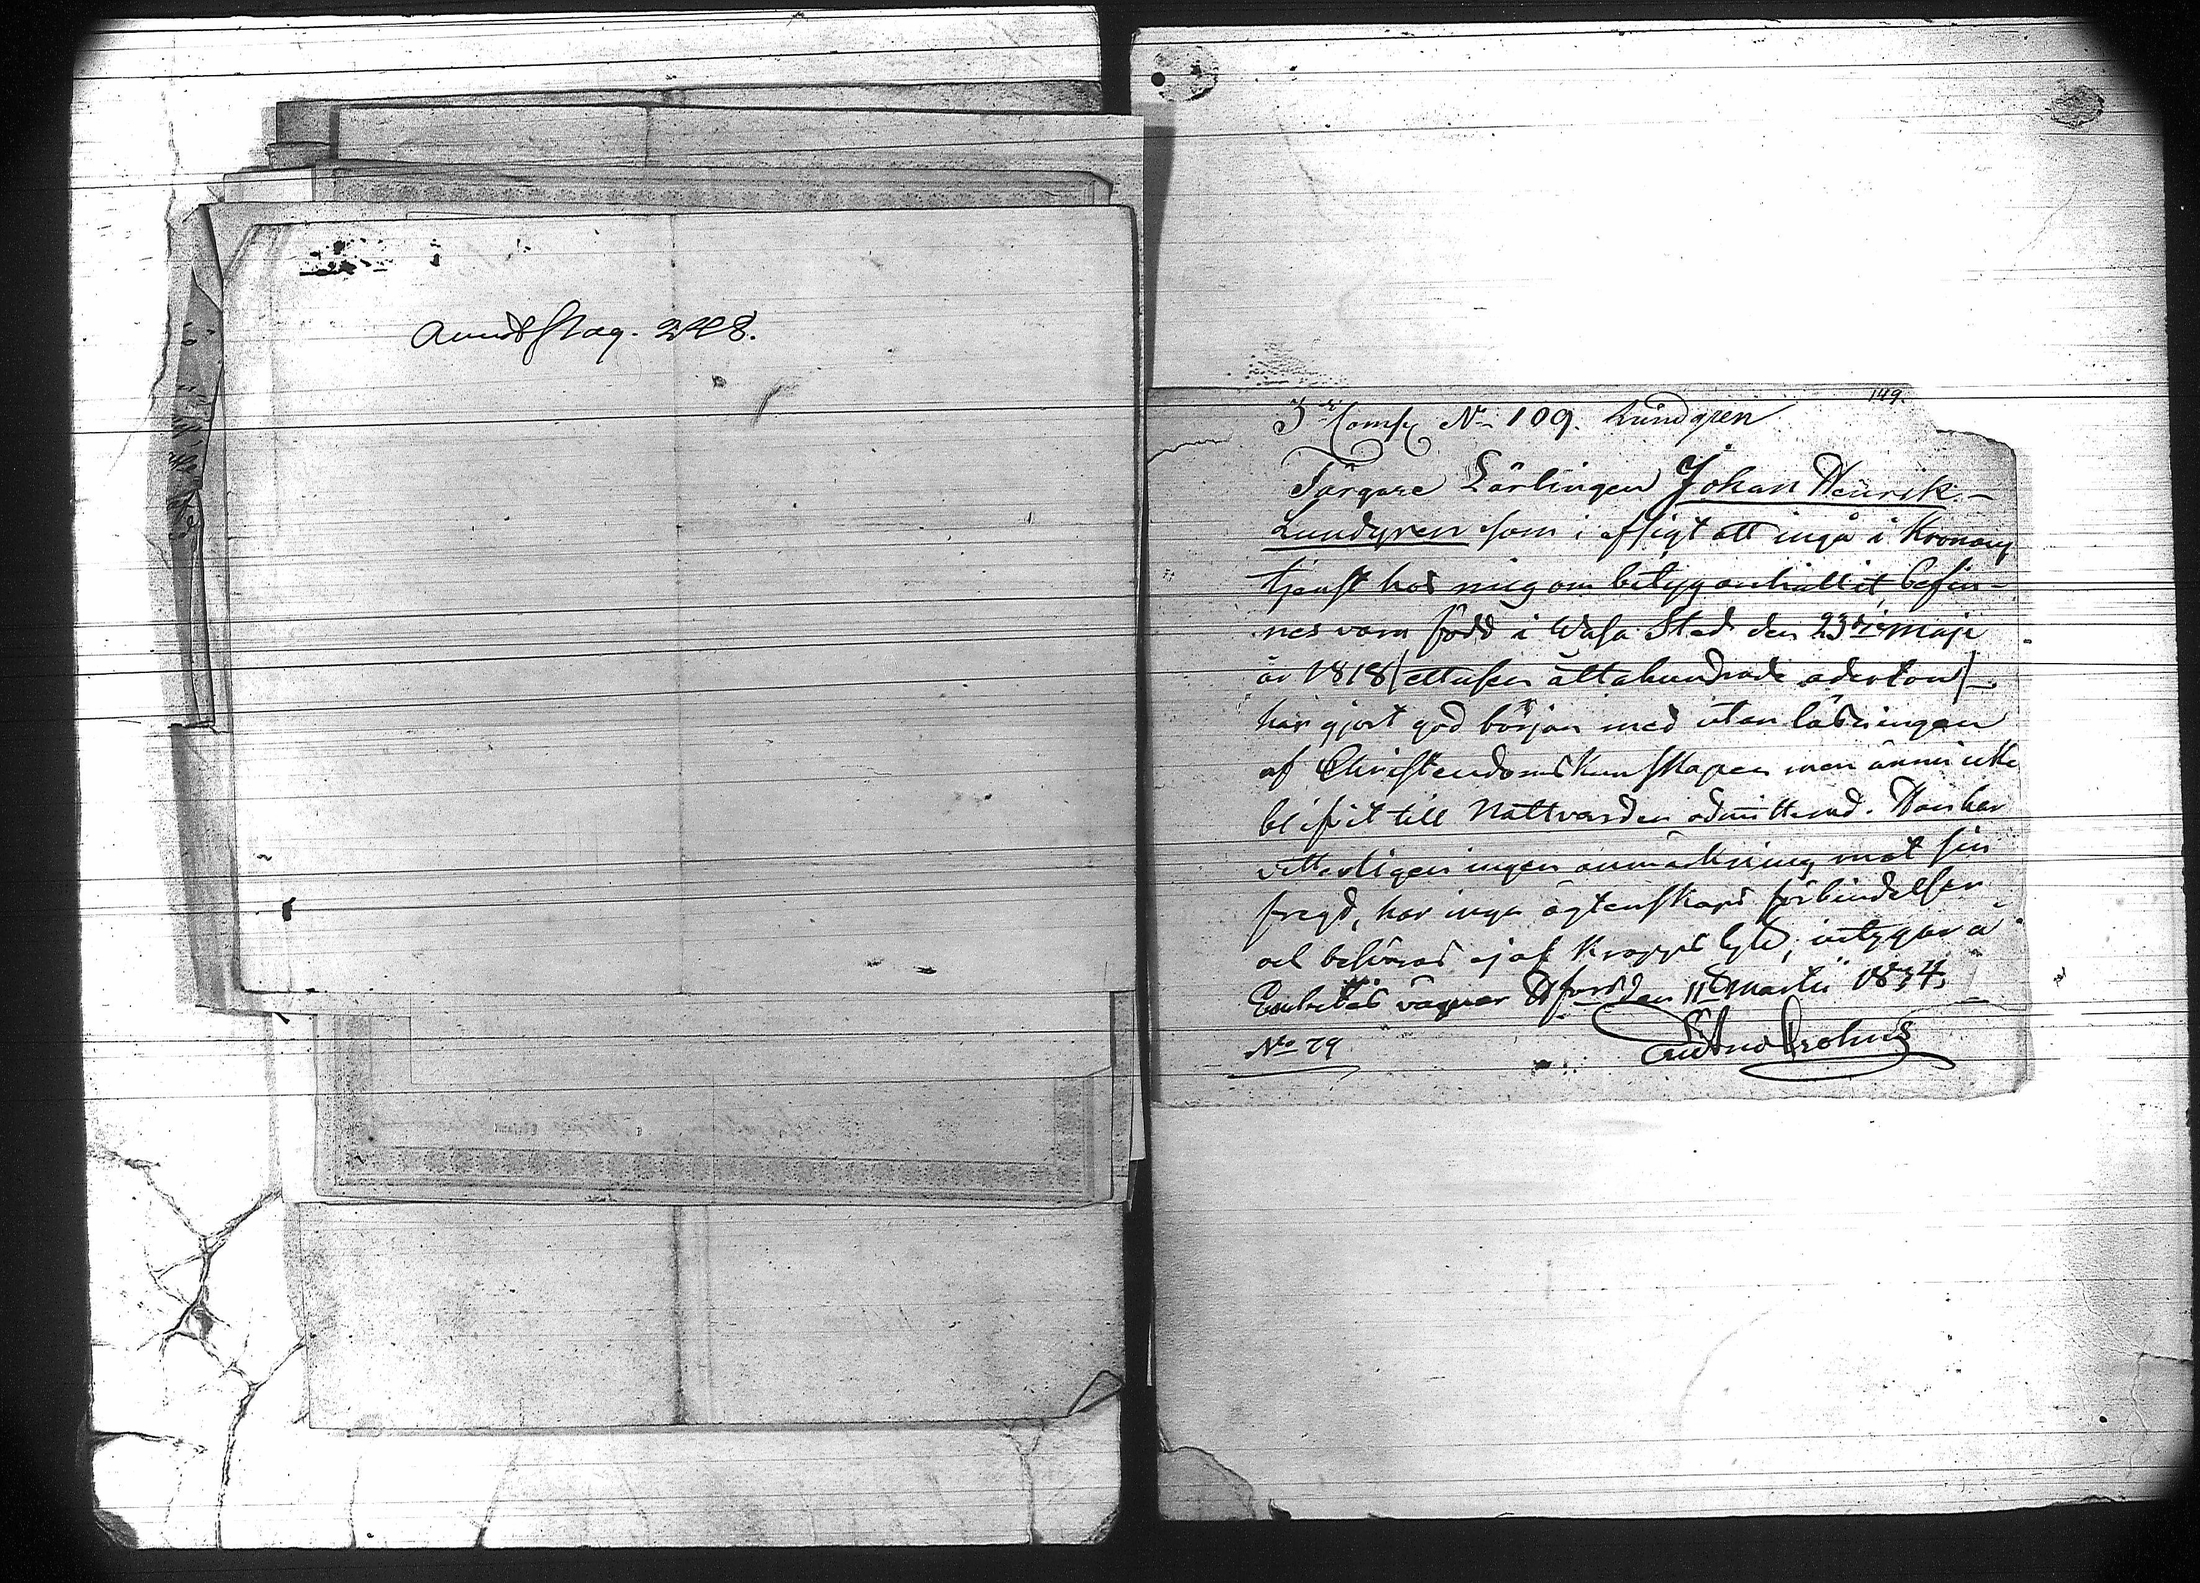 248.
149.
3 Comp N 109. Lundgren
Färgare Lärlingen Johan Henrik
Lundgren som i afsigt att ingå i Kronans
tjenst hos mig om betyg anhållit, befin-
nes vara född i Wasa Stad den 23 maji
år 1818 (ettusen åttahundrade aderton)
har gjort god början med utan läsningen
af Christendoms Kunskapen men ännu icke
blifvit till Nattvarden admitterad. Han har
vitterligen ingen anmärkning mot sin
fregd, har inga ägtenskaps förbindelser
och besväras ej af Kropps lyte, intygar å
Embetets vägnar den 11 Martii 1834.
No 79